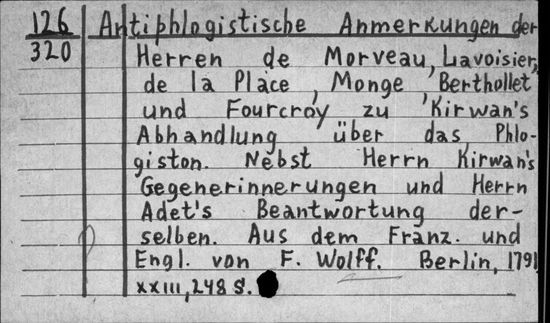 126 Antiphlogistische Anmerkungen der
320 Herren de Morveau, Lavoisier,
de la Place, Monge, Berthollet
und Fourcroy zu Kirwan's
Abhandlung über das Phlo-
giston. Nebst Herrn Kirwan's
Gegenerinnerungen und Herrn
Adet's Beantwortung der-
selben. Aus dem Franz. und
Engl. von F. Wolff. Berlin, 1791
XXIII, 248 S.